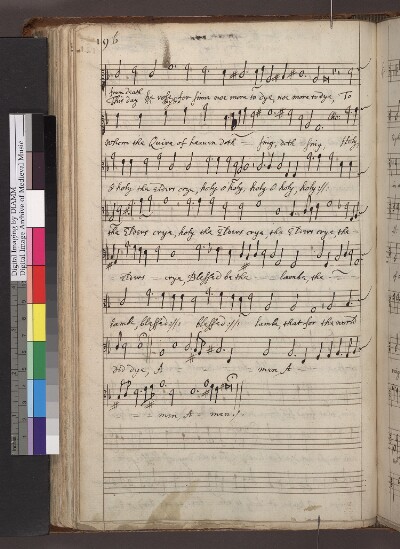 196
from death
This day he rose for sinn noe more to dye, noe more to dye, To
whom the Quire of heaven doth sing, doth sing, Holy,
o holy the Elders crye, holy O holy, holy O holy, holy :||:
the Elders crye, holy the Elders crye the Elders crye, the
Elders crye, Blessed be the lambe, the
lambe, blessed :||: blessed :||: lambe, that for the world
did dye, A men A
men A men.
Digital Imaging by DIAMM
Digital Image Archive of Medieval Music